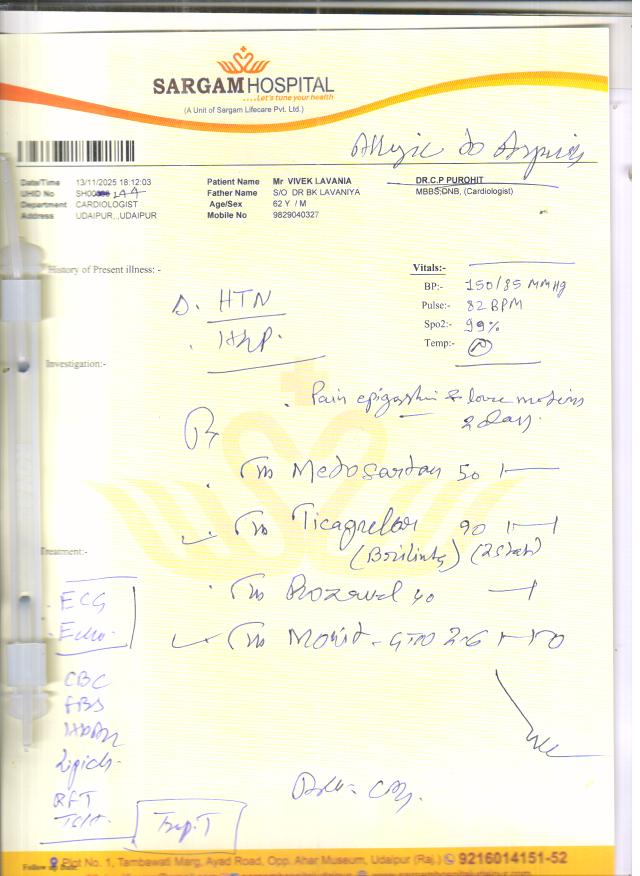 SARGAM HOSPITAL
....Let's tune your health
(A Unit of Sargam Lifecare Pvt. Ltd.)
Allergic to Aspirin
Date/Time 13/11/2025 18:12:03
UHID No
Department CARDIOLOGIST
Address UDAIPUR,,,UDAIPUR
Patient Name Mr VIVEK LAVANIA
Father Name S/O DR BK LAVANIYA
Age/Sex 62 Y / M
Mobile No 9829040327
DR.C.P PUROHIT
MBBS,DNB, (Cardiologist)
History of Present illness: -
HTN
Vitals:-
BP:- 150/85 MMHg
Pulse:- 82 BPM
Spo2:- 99%
Temp:- N
Investigation:-
Pain epigastrium & loose motions
2 days.
Rx
50
Ticagrelor 90
(Brilinta) (2 stat)
40
Treatment:-
ECG
Echo
CBC
FBS
HbA1c
Lipids
RFT
Trop. T
Plot No. 1, Tambawati Marg, Ayad Road, Opp. Ahar Museum, Udaipur (Raj.) 9216014151-52